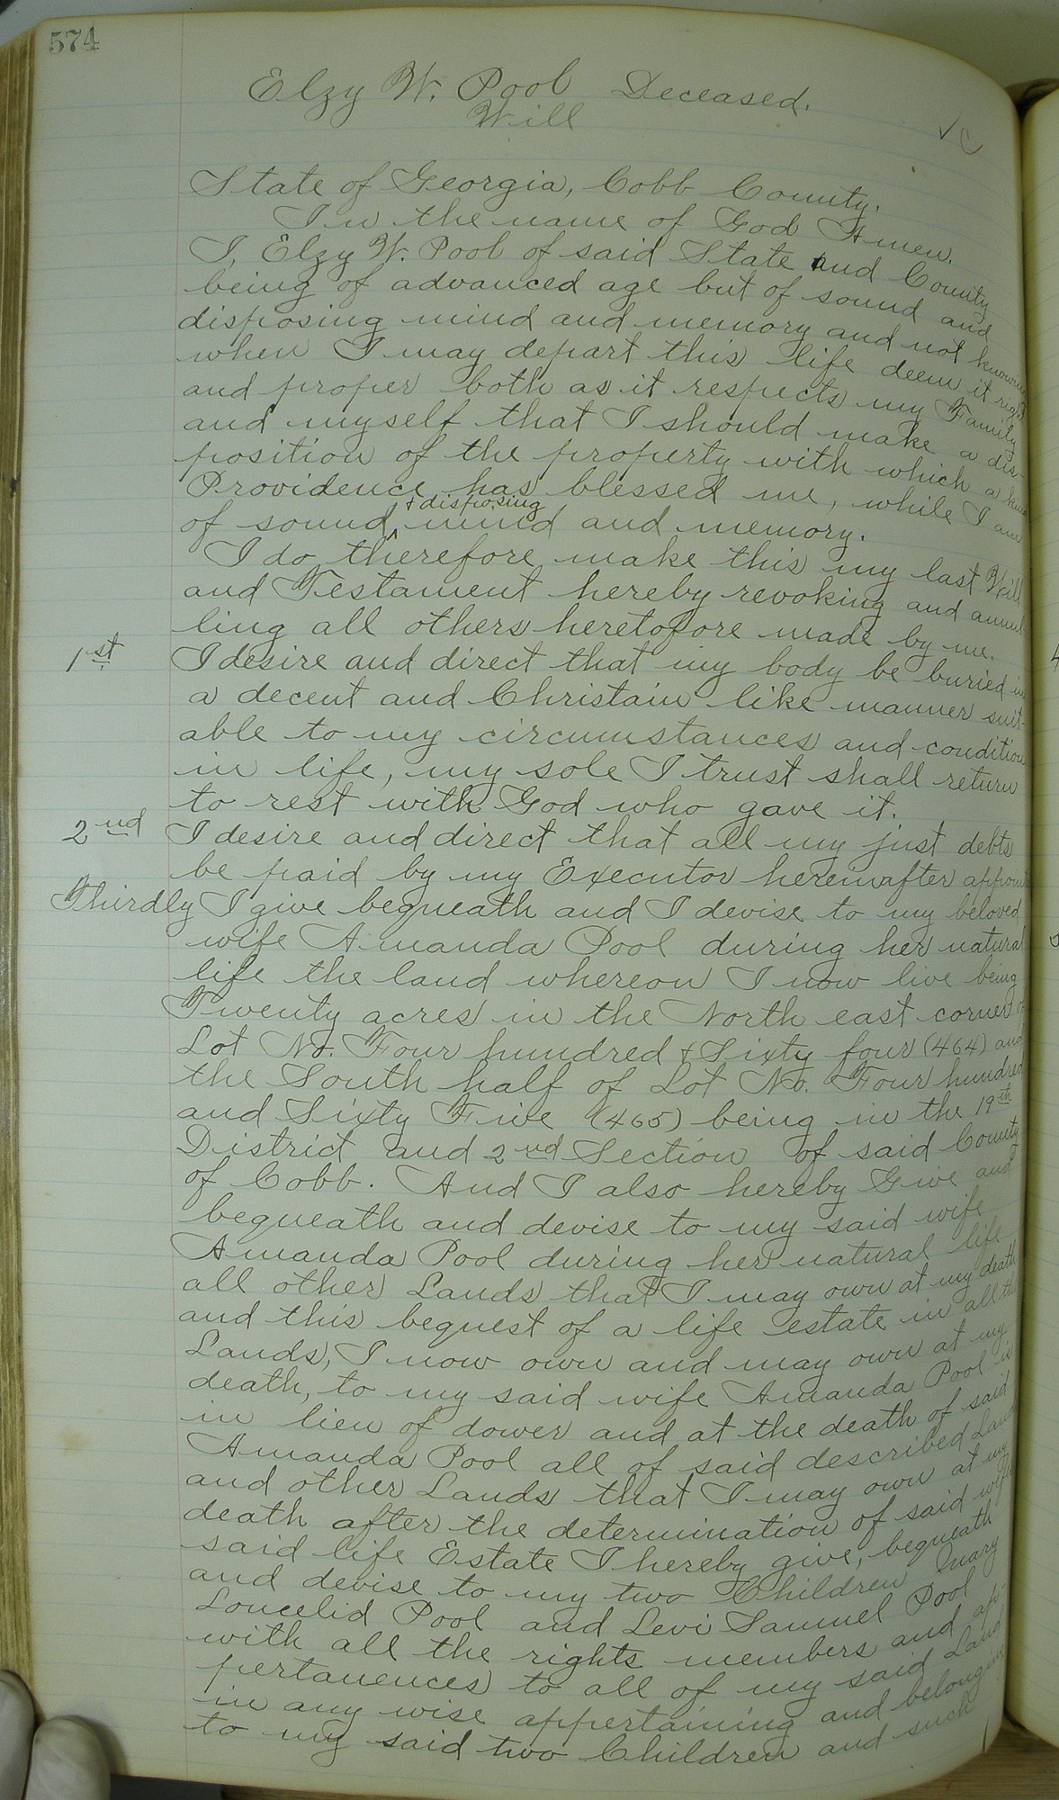 574
Elzy W. Pool Deceased.
Will
State of Georgia, Cobb County.
In the name of God Amen.
I, Elzy W. Pool of said State and County
being of advanced age but of sound and
disposing mind and memory and not knowing
when I may depart this life deem it right
and proper both as it respects my Family
and myself that I should make a dis-
position of the property with which a kind
Providence has blessed me, while I am
of sound & disposing mind and memory.
I do therefore make this my last Will
and Testament hereby revoking and annul-
ling all others heretofore made by me.
1st I desire and direct that my body be buried in
a decent and Christain like manner suit-
able to my circumstances and condition
in life, my sole I trust shall return
to rest with God who gave it.
2nd I desire and direct that all my just debts
be paid by my Executor hereinafter appoint
Thirdly I give bequeath and I devise to my beloved
wife Amanda Pool during her natural
life the land whereon I now live being
Twenty acres in the North east corner of
Lot No. Four hundred & Sixty four (464) and
the South half of Lot No. Four hundred
and Sixty Five (465) being in the 19th
District and 2nd Section of said County
of Cobb. And I also hereby Give and
bequeath and devise to my said wife
Amanda Pool during her natural life
all other Lands that I may own at my death
and this bequest of a life estate in all the
Lands, I now own and may own at my
death, to my said wife Amanda Pool is
in lieu of dower and at the death of said
Amanda Pool all of said described Land
and other Lands that I may own at my
death after the determination of said wife
said life Estate I hereby give, bequeath
and devise to my two Children Mary
Loucelid Pool and Levi Samuel Pool
with all the rights members and ap-
pertanences to all of my said Land
in any wise appertaining and belonging
to my said two Children and such